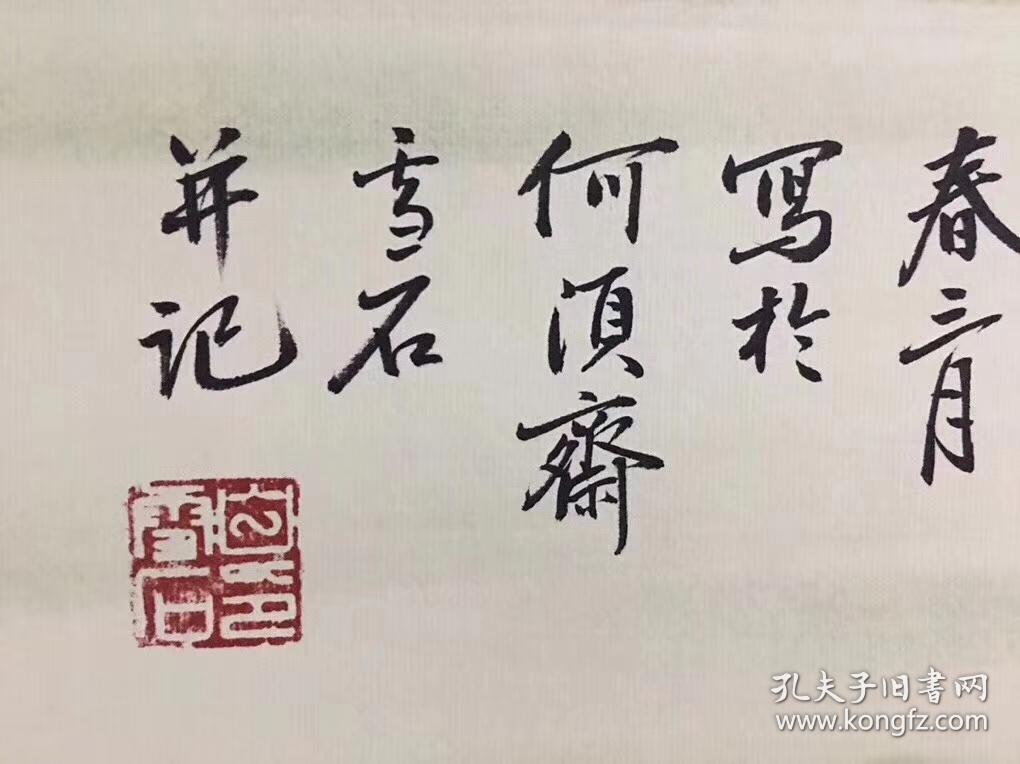 春三月
寫於
何須齋
雪石
并记
孔夫子旧書网
www.kongfz.com